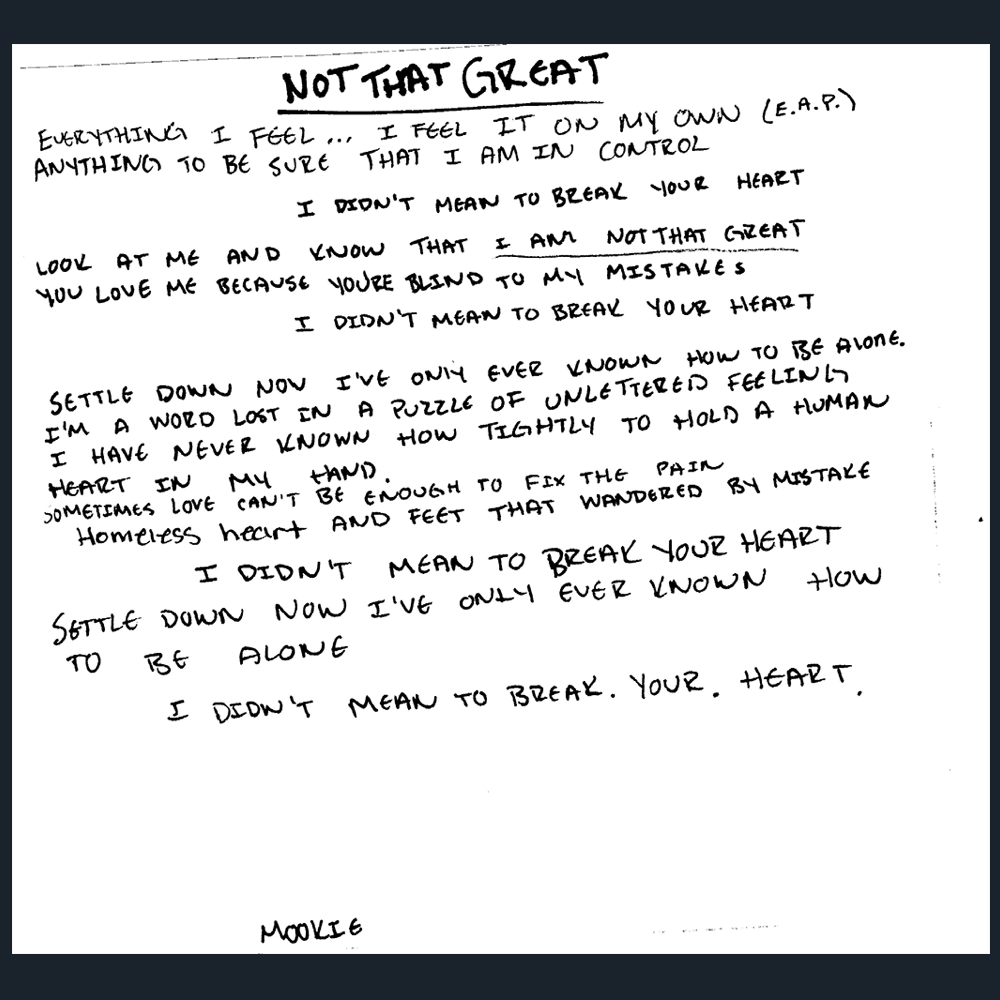 NOT THAT GREAT
EVERYTHING I FEEL... I FEEL IT ON MY OWN (E.A.P.)
ANYTHING TO BE SURE THAT I AM IN CONTROL
I DIDN'T MEAN TO BREAK YOUR HEART
LOOK AT ME AND KNOW THAT I AM NOT THAT GREAT
YOU LOVE ME BECAUSE YOU'RE BLIND TO MY MISTAKES
I DIDN'T MEAN TO BREAK YOUR HEART
SETTLE DOWN NOW I'VE ONLY EVER KNOWN HOW TO BE ALONE.
I'M A WORD LOST IN A PUZZLE OF UNLETTERED FEELING
I HAVE NEVER KNOWN HOW TIGHTLY TO HOLD A HUMAN
HEART IN MY HAND.
SOMETIMES LOVE CAN'T BE ENOUGH TO FIX THE PAIN
Homeless heart AND FEET THAT WANDERED BY MISTAKE
I DIDN'T MEAN TO BREAK YOUR HEART
SETTLE DOWN NOW I'VE ONLY EVER KNOWN HOW
TO BE ALONE
I DIDN'T MEAN TO BREAK. YOUR. HEART.
MOOKIE